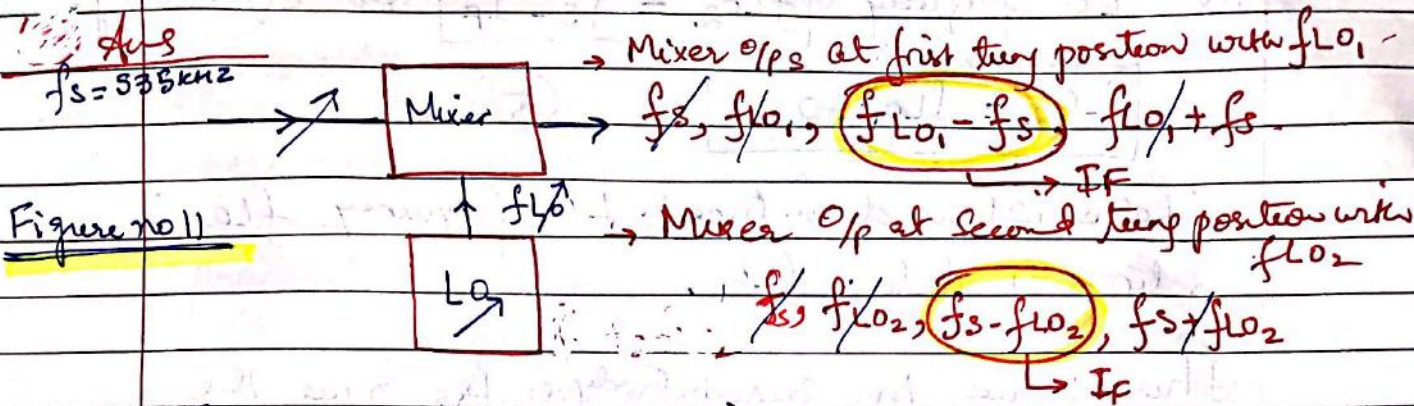 Ans
fs = 535 kHz
→ Mixer O/ps at frist tuny position with fLO₁ -
Mixer
fs, fLO₁, fLO₁ - fs, fLO₁ + fs
→ IF
fLO
Figure no 11
→ Mixer O/p at Second tuny position with
fLO₂
LO
fs, fLO₂, fs - fLO₂, fs + fLO₂
→ IF